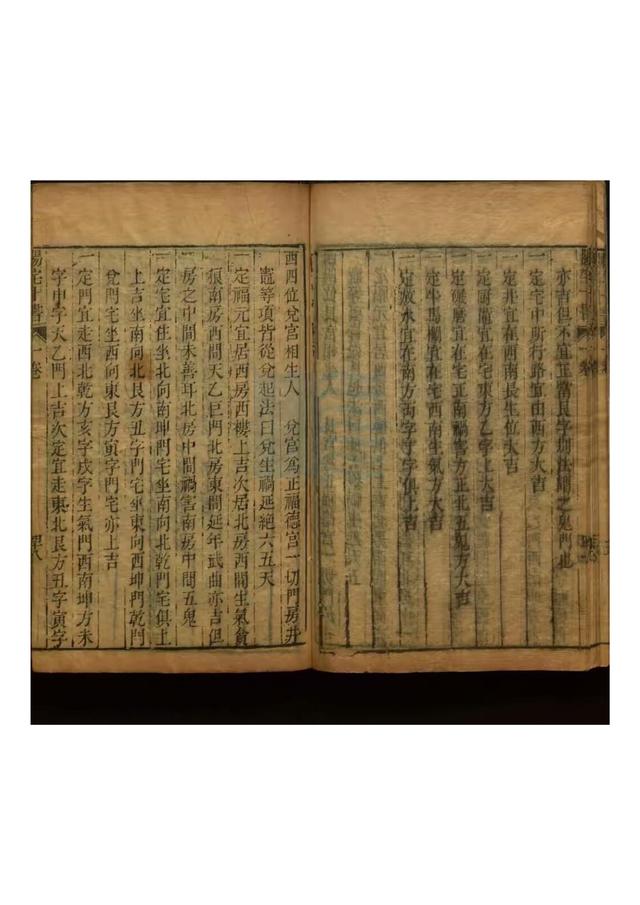 亦吉但不宜正當艮字別法謂之鬼門也
一定宅中所行路宜由西方大吉
一定井宜在西南長生位大吉
一定厨竈宜在宅東方乙字上大吉
一定碾磨宜在宅正南禍害方正北五鬼方大吉
一定牛馬欄宜在宅西南生氣方大吉
一定放水宜在南方丙字丁字俱上吉
陽宅十書 一卷
酉四位兌宮相生人 兌宮爲正福德宮一切門房井
竈等項皆從兌起法曰兌生禍延絶六五天
一定福元宜居西房西樓上吉次居北房西間生氣貪
狼南房西間天乙巨門北房東間延年武曲亦吉但
房之中間未善耳北房中間禍害南房中間五鬼
一定宅宜住坐北向南坤門宅坐南向北乾門宅俱上
上吉坐南向北艮方丑字門宅坐東向西坤門乾門
兌門宅坐西向東艮方寅字門宅亦上吉
一定門宜走西北乾方亥字戌字生氣門西南坤方未
字申字天乙門上吉次定宜走東北艮方丑字寅字
陽宅十書 一卷